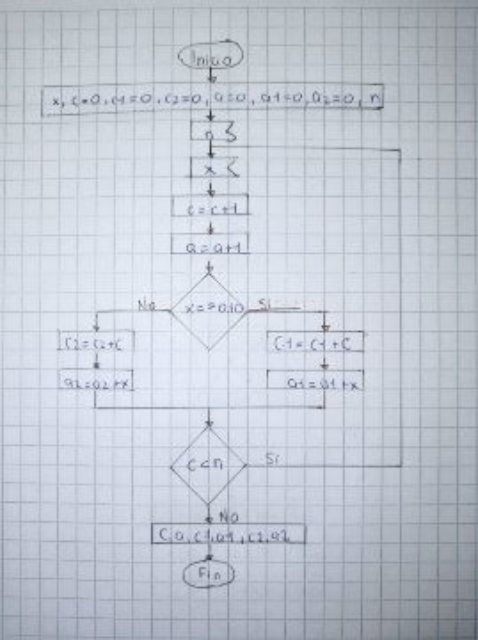 Inicio
x, c=0, c1=0, c2=0, a=0, a1=0, a2=0, n
n
x
c=c+1
a=a+1
No
Si
c2=c2+c
c1=c1+c
a2=a2+x
a1=a1+x
c<n
Si
No
c, a, c1, a1, c2, a2
Fin